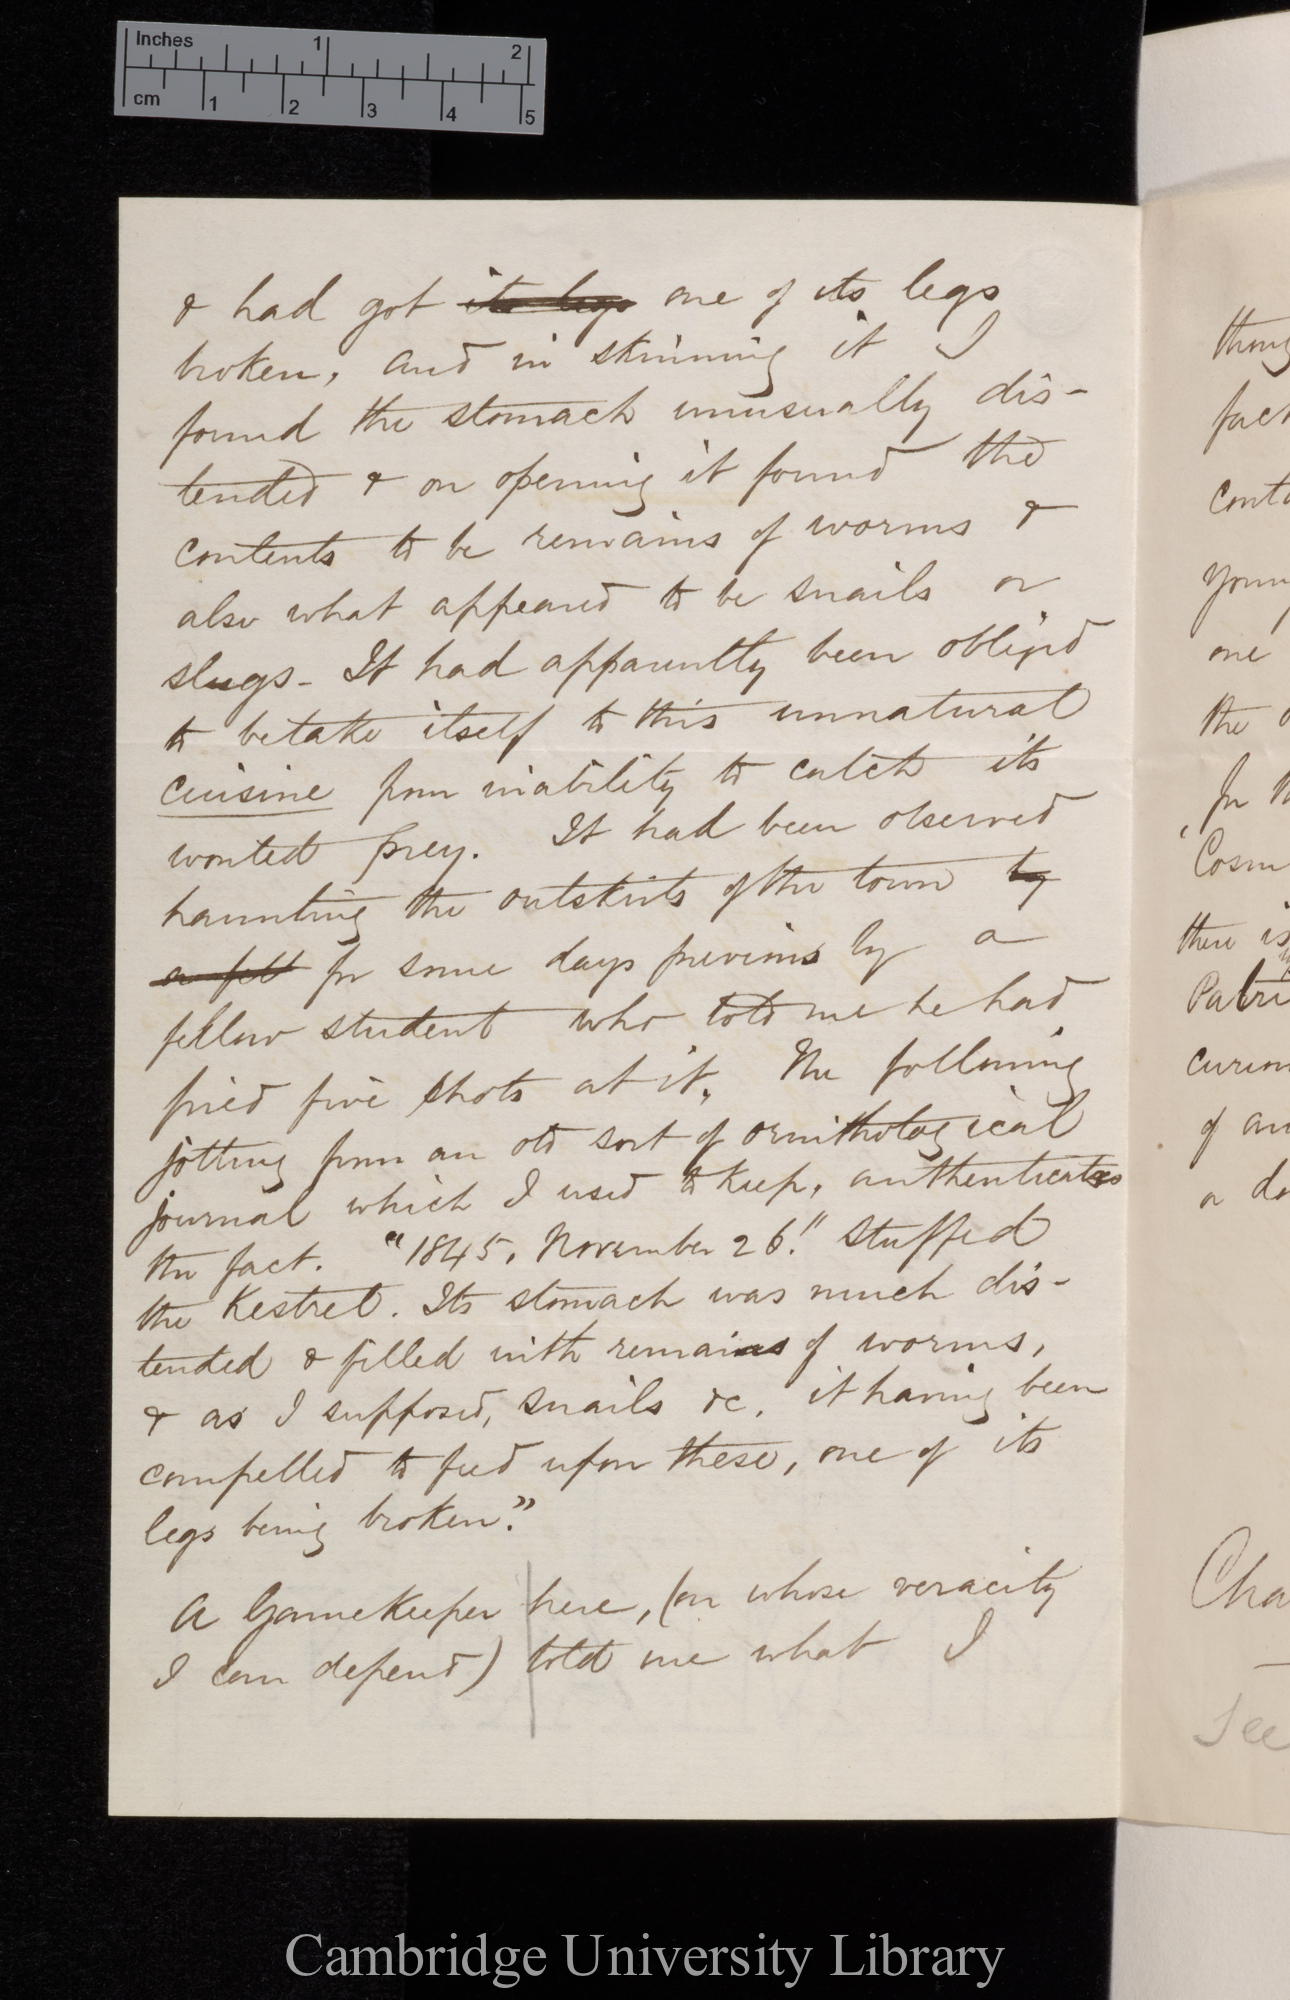 Inches 1 2
cm 1 2 3 4 5
& had got its legs one of its legs
broken, and in skinning it I
found the stomach unusually dis-
tended & on opening it found the
contents to be remains of worms &
also what appeared to be snails or
slugs - It had apparently been obliged
to betake itself to this unnatural
cuisine from inability to catch its
wonted prey. It had been observed
haunting the outskirts of the town by
a fell for some days previous by a
fellow student who told me he had
fired five shots at it. The following
jotting from an old sort of ornithological
journal which I used to keep, authenticates
the fact. "1845, November 26." Stuffed
the Kestrel. Its stomach was much dis-
tended & filled with remains of worms,
& as I supposed, snails &c, it having been
compelled to feed upon these, one of its
legs being broken."
A Gamekeeper here, (on whose veracity
I can depend) told me what I
thoug
fact
conta
young
one
the
In th
"Cosm
there is
Patri
curious
of an
a do
Cha
See
Cambridge University Library